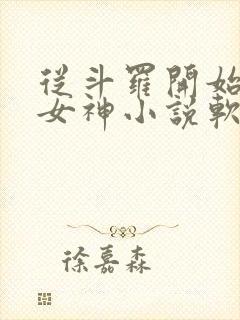 從斗羅開始
女神小說軟
徐嘉森